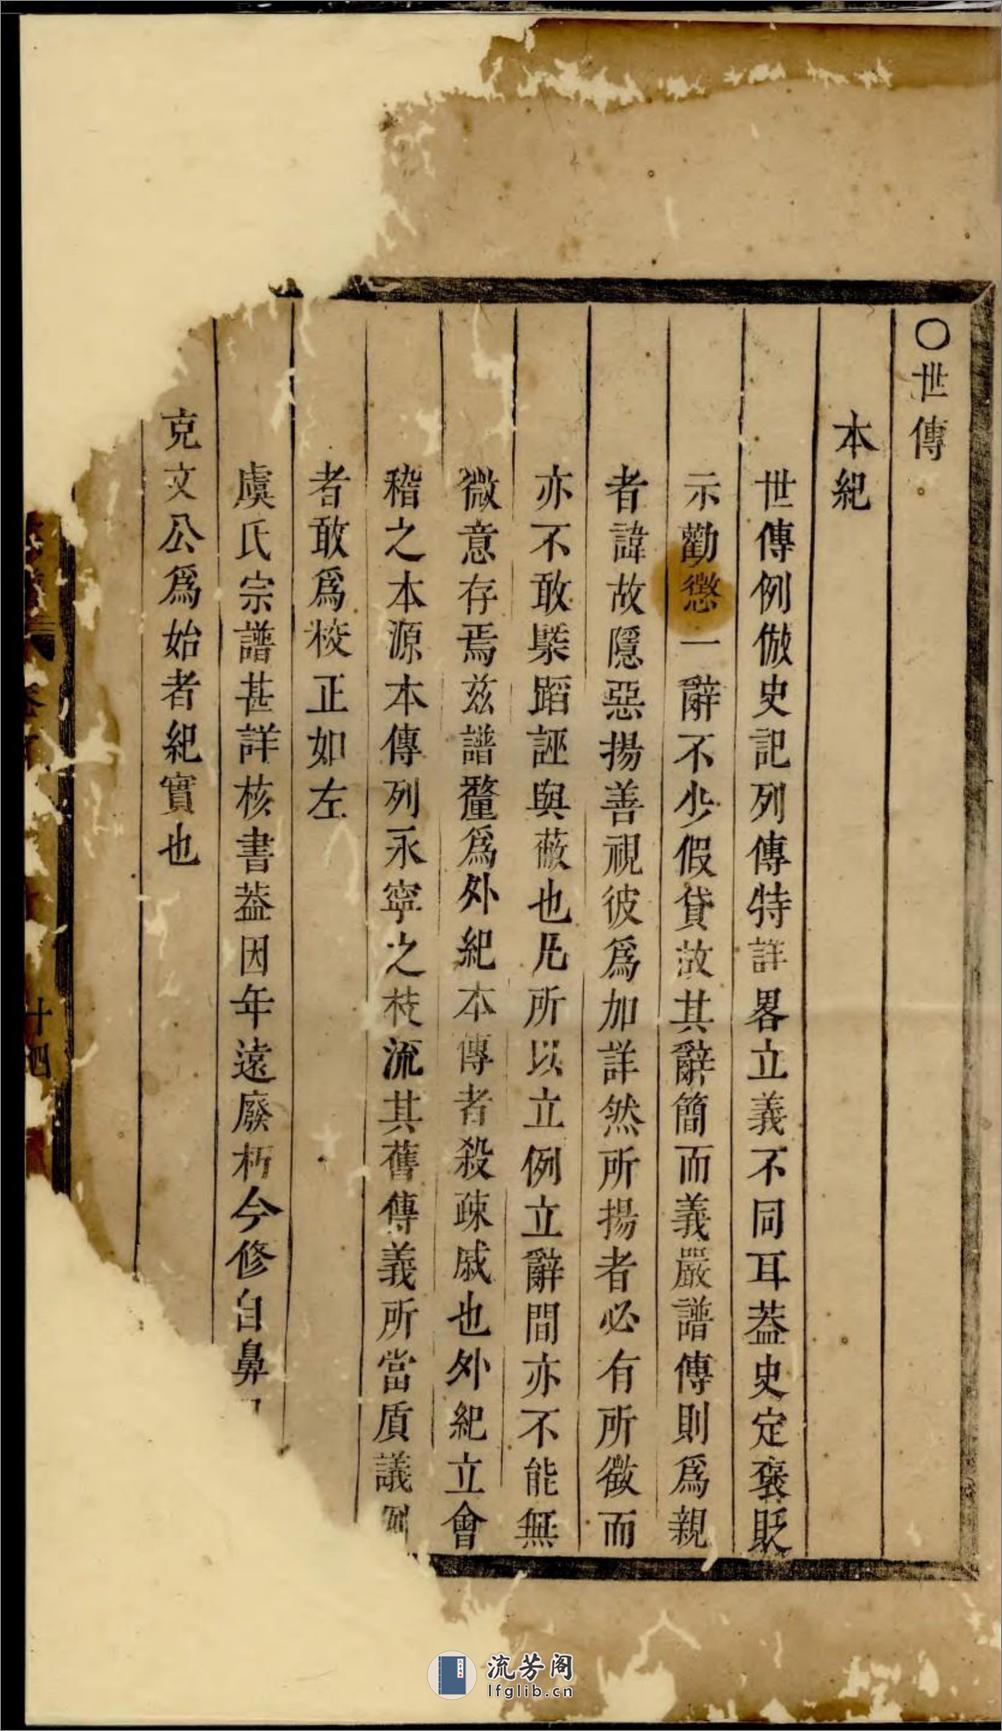 〇世傳
本紀
世傳例倣史記列傳特詳畧立義不同耳葢史定褒貶
示勸懲一辭不少假貸故其辭簡而義嚴譜傳則爲親
者諱故隱惡揚善視彼爲加詳然所揚者必有所徵而
亦不敢槩蹈誣與蔽也凡所以立例立辭間亦不能無
微意存焉兹譜釐爲外紀本傳者殺疎戚也外紀立會
稽之本源本傳列永寧之枝流其舊傳義所當質議
者敢爲校正如左
虞氏宗譜甚詳核書葢因年遠廢朽今修自鼻
克文公爲始者紀實也
流芳阁
lfglib.cn